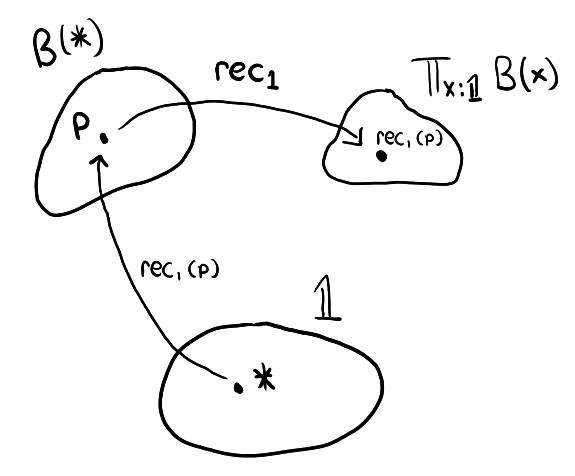 B(*)
rec₁
∏ₓ:𝟙 B(x)
p
rec₁(p)
rec₁(p)
𝟙
*